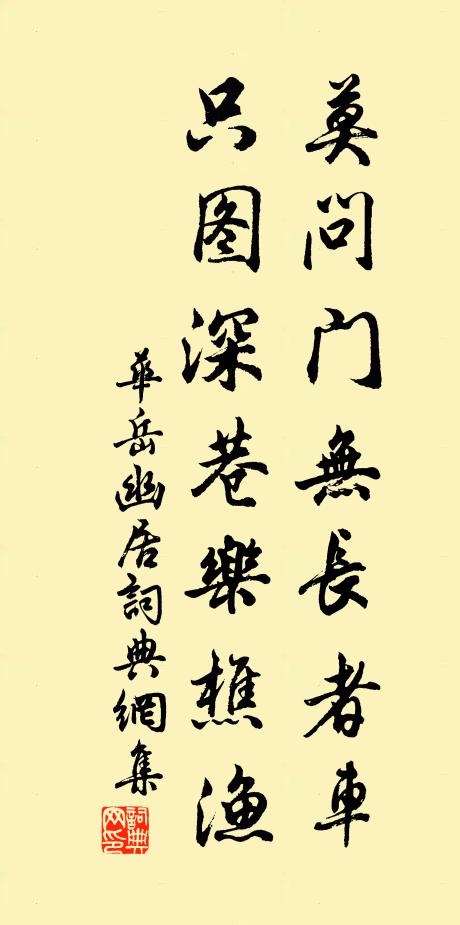 莫问门無長者車
只图深巷樂樵漁
華岳幽居詞典網集
詞典网印